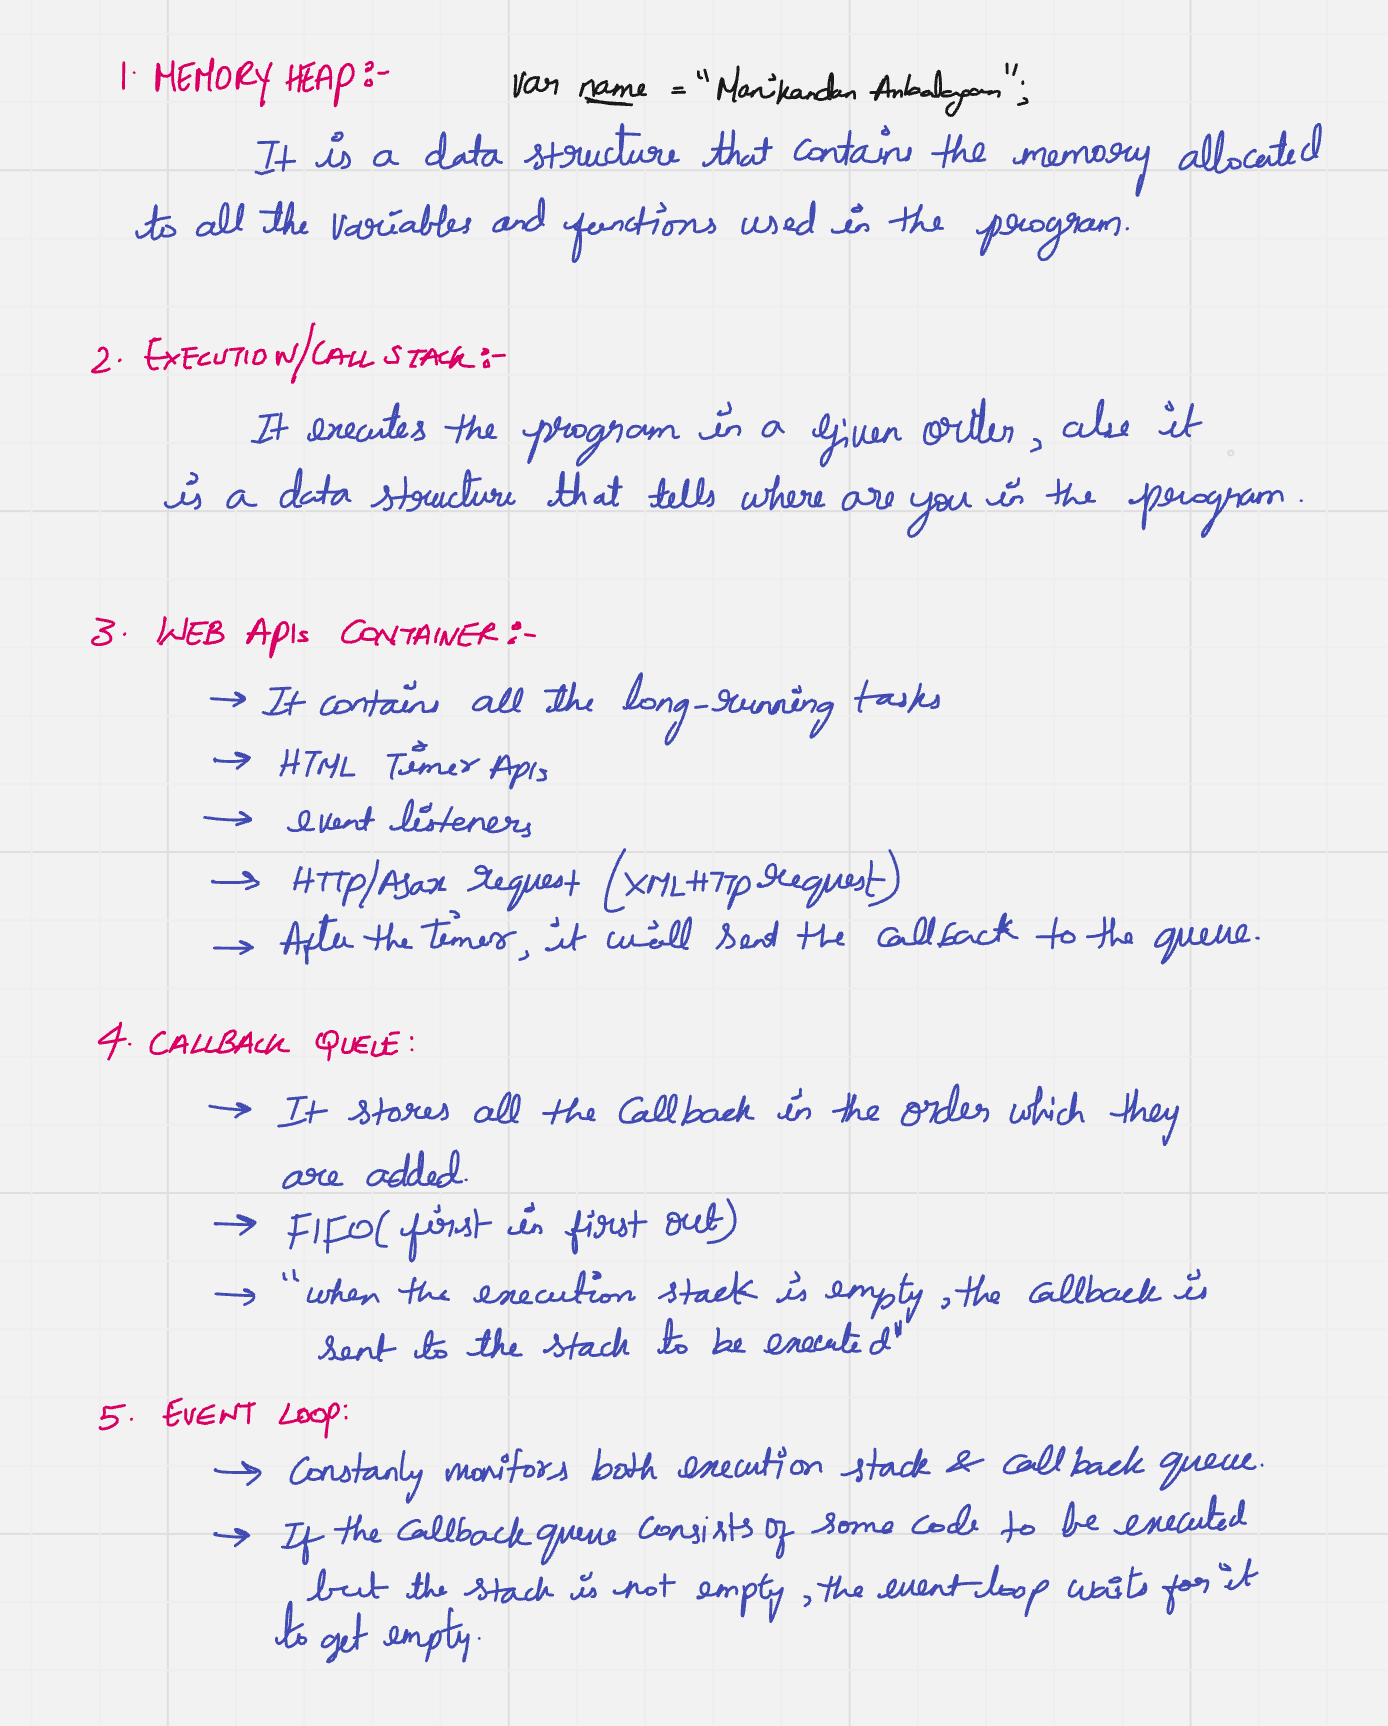 1. MEMORY HEAP:- var name = "Manikandan Anbalagan";
It is a data structure that contains the memory allocated
to all the variables and functions used in the program.
2. EXECUTION/CALL STACK:-
It executes the program in a given order, also it
is a data structure that tells where are you in the program.
3. WEB APIs CONTAINER:-
→ It contains all the long-running tasks
→ HTML Timer APIs
→ event listeners
→ HTTP/Ajax request (XMLHTTP request)
→ After the timer, it will send the callback to the queue.
4. CALLBACK QUEUE:
→ It stores all the callback in the order which they
are added.
→ FIFO (first in first out)
→ "when the execution stack is empty, the callback is
sent to the stack to be executed"
5. EVENT LOOP:
→ Constanly monitors both execution stack & callback queue.
→ If the callback queue consists of some code to be executed
but the stack is not empty, the event loop waits for it
to get empty.